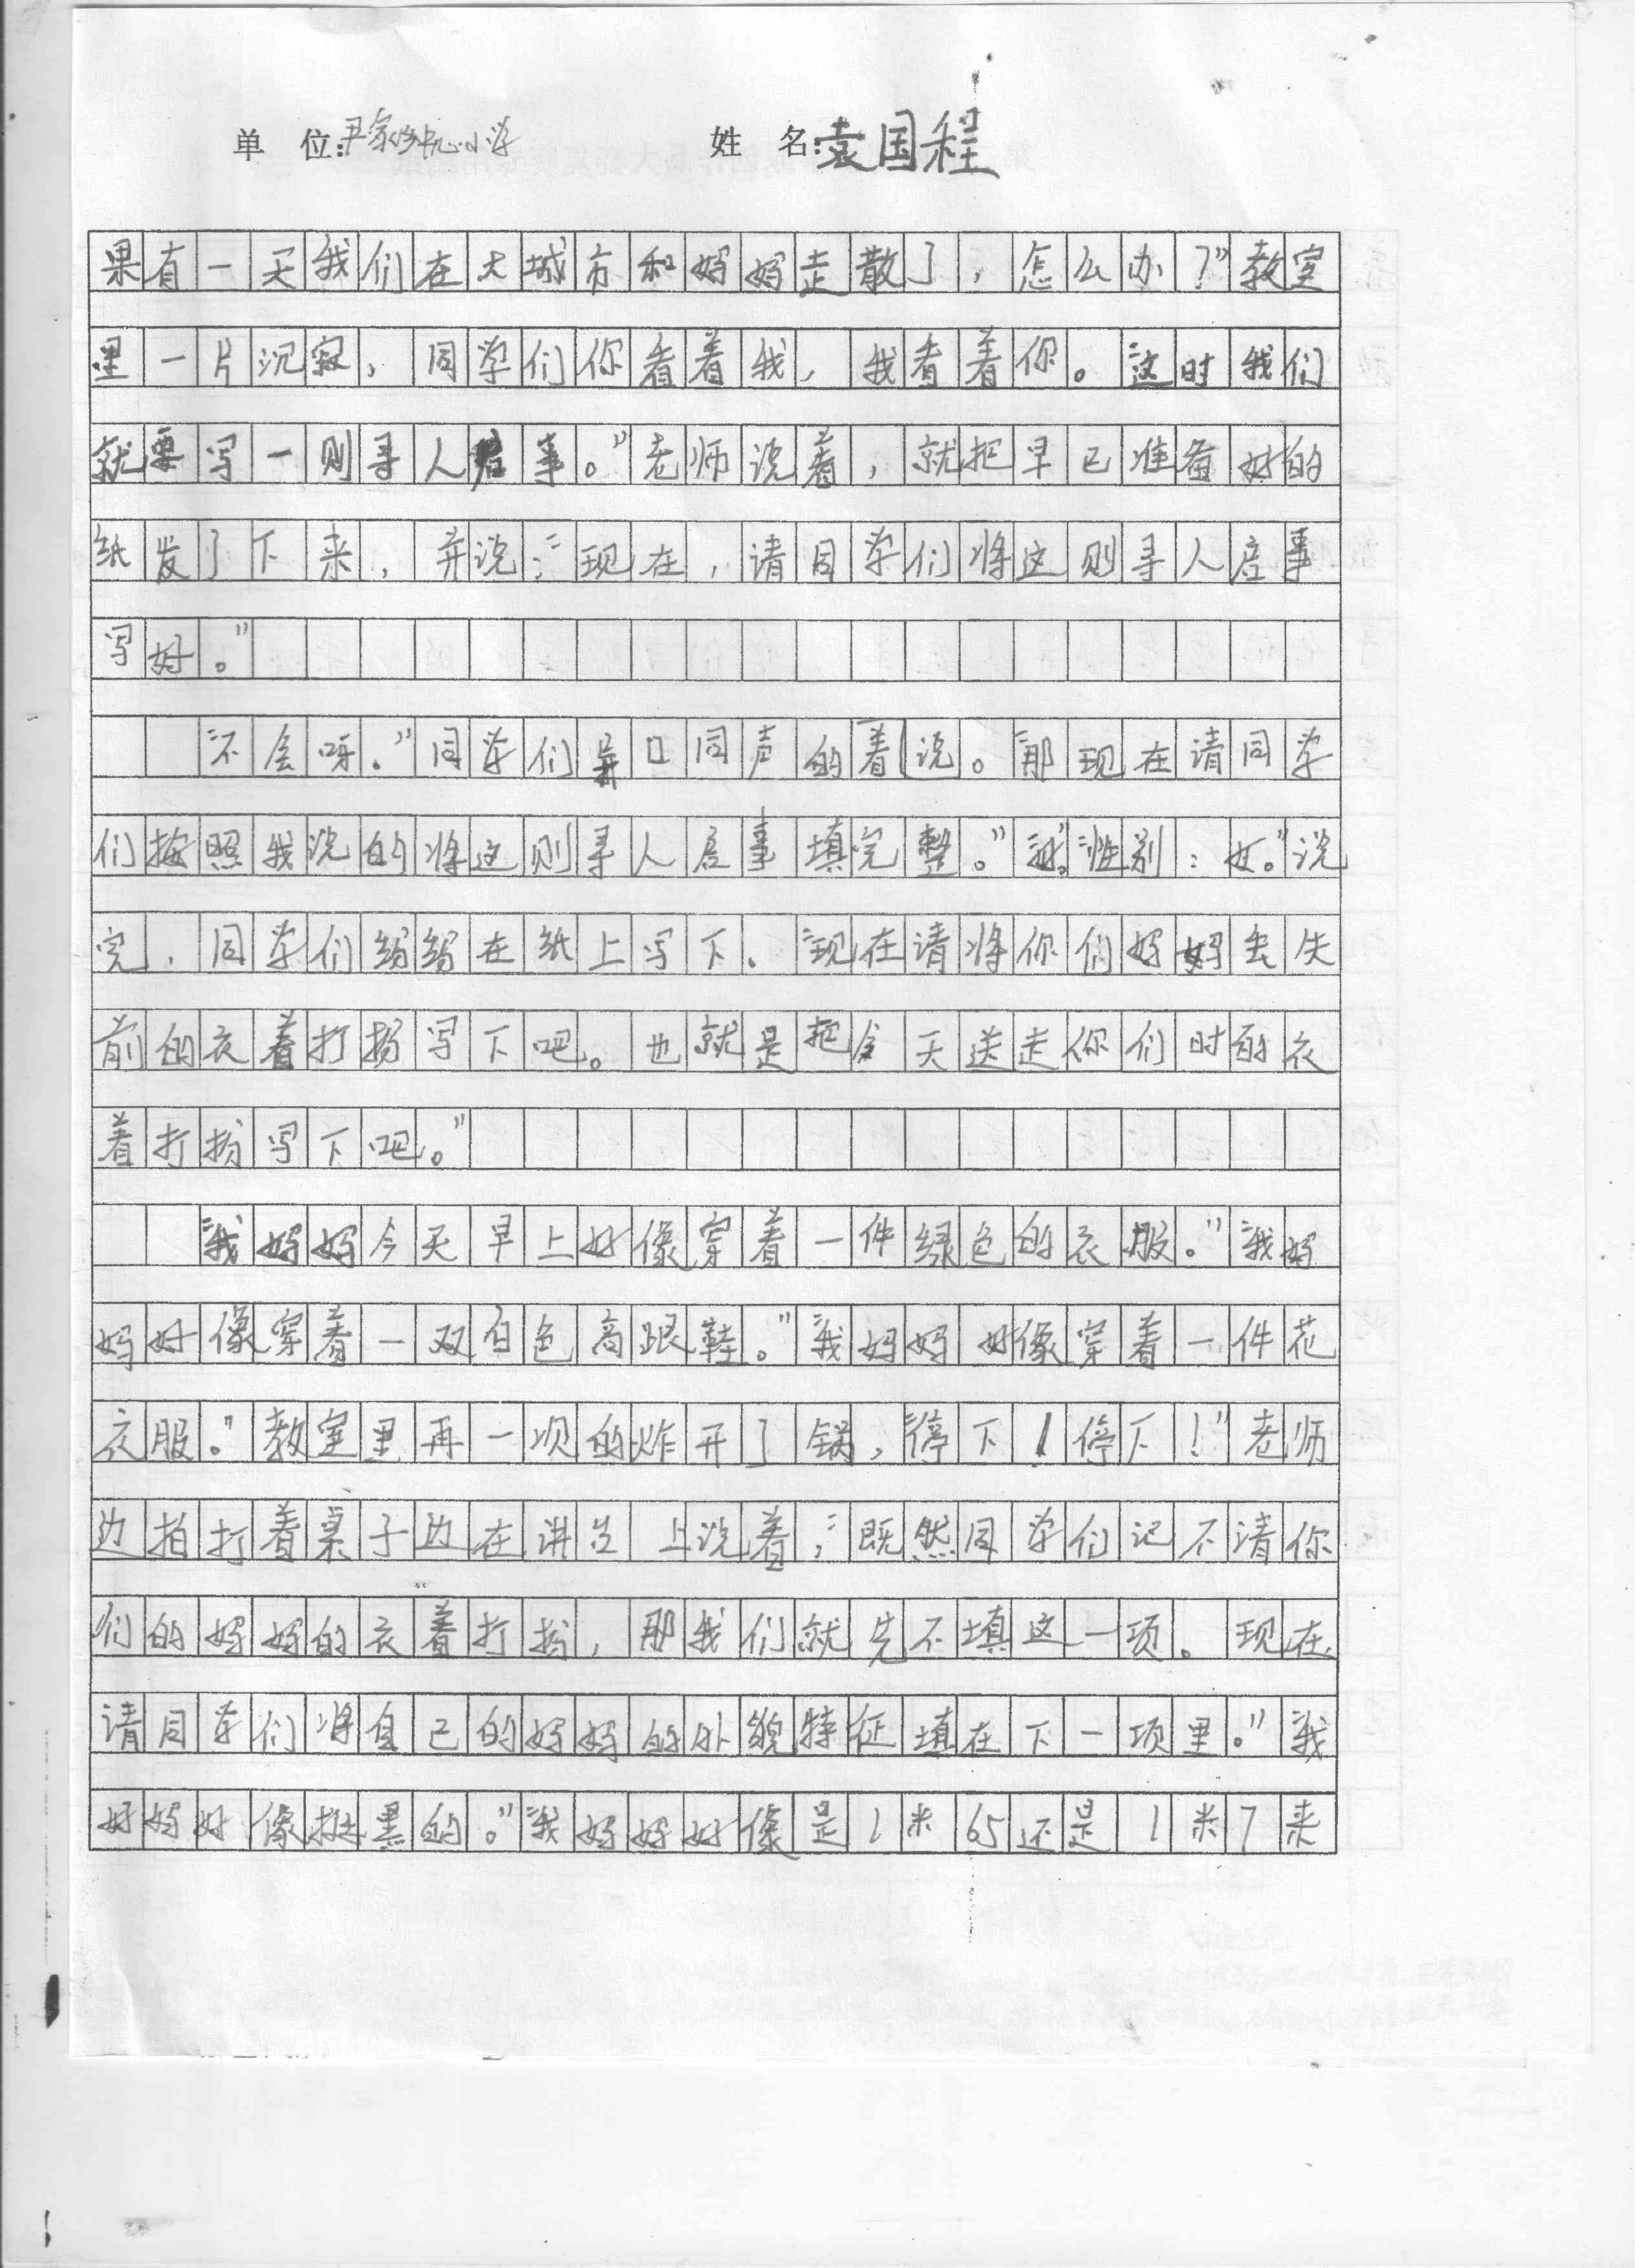 单 位:尹家乡中心小学 姓 名:袁国程
果有一天我们在大城市和妈妈走散了，怎么办？”教室
里一片沉寂，同学们你看着我，我看着你。“这时我们
就要写一则寻人启事。”老师说着，就把早已准备好的
纸发了下来，并说：“现在，请同学们将这则寻人启事
写好。”
“不会呀。”同学们异口同声的着说。“那现在请同学
们按照我说的将这则寻人启事填完整。”“性别：女。”说
完，同学们纷纷在纸上写下。“现在请将你们妈妈丢失
前的衣着打扮写下吧。也就是把今天送走你们时的衣
着打扮写下吧。”
“我妈妈今天早上好像穿着一件绿色的衣服。”“我妈
妈好像穿着一双白色高跟鞋。”“我妈妈好像穿着一件花
衣服。”教室里再一次的炸开了锅，“停下！停下！”老师
边拍打着桌子边在讲台上说着，“既然同学们记不请你
们的妈妈的衣着打扮，那我们就先不填这一项。现在
请同学们将自己的妈妈的外貌特征填在下一项里。”“我
妈妈好像挺黑的。”“我妈妈好像是1米65还是1米7来